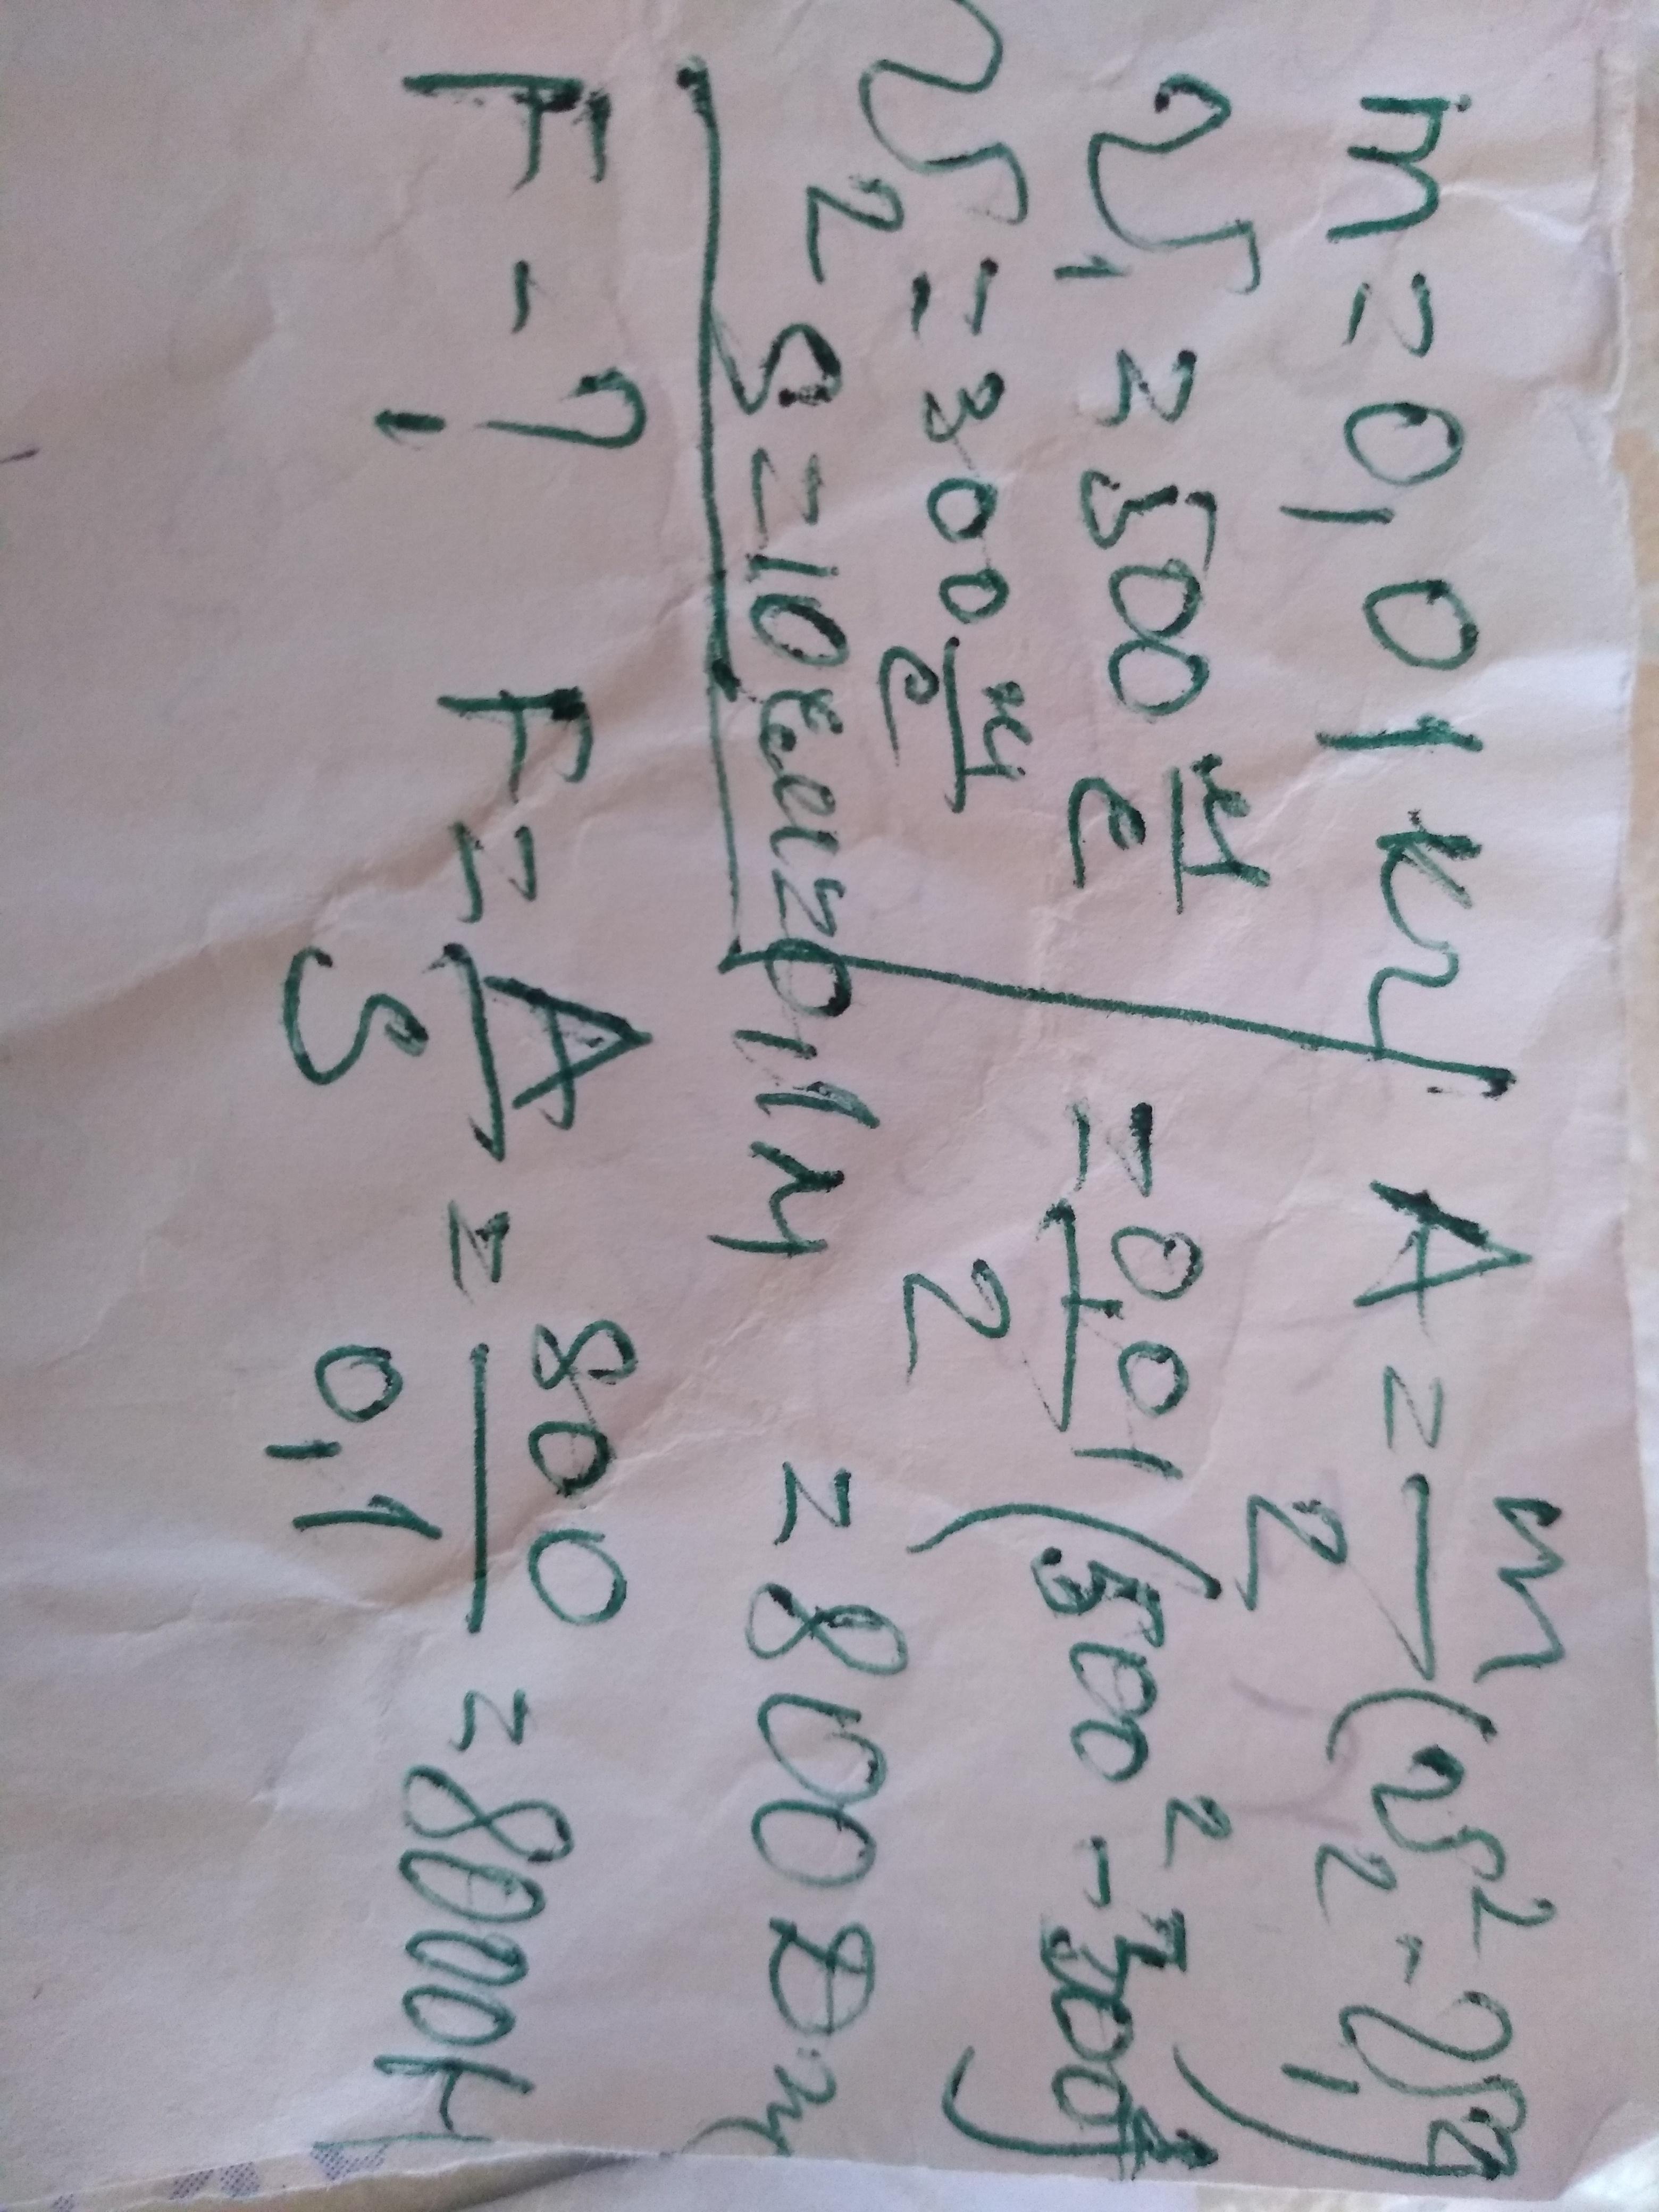 m = 0,01 кг
υ₁ = 500 м/с
υ₂ = 300 м/с
S = 10 см = 0,1 м
F - ?
A = m/2 (υ₂² - υ₁²)
= 0,01/2 (500² - 300²)
= 800 Дж
F = A/S = 800/0,1 = 8000 Н